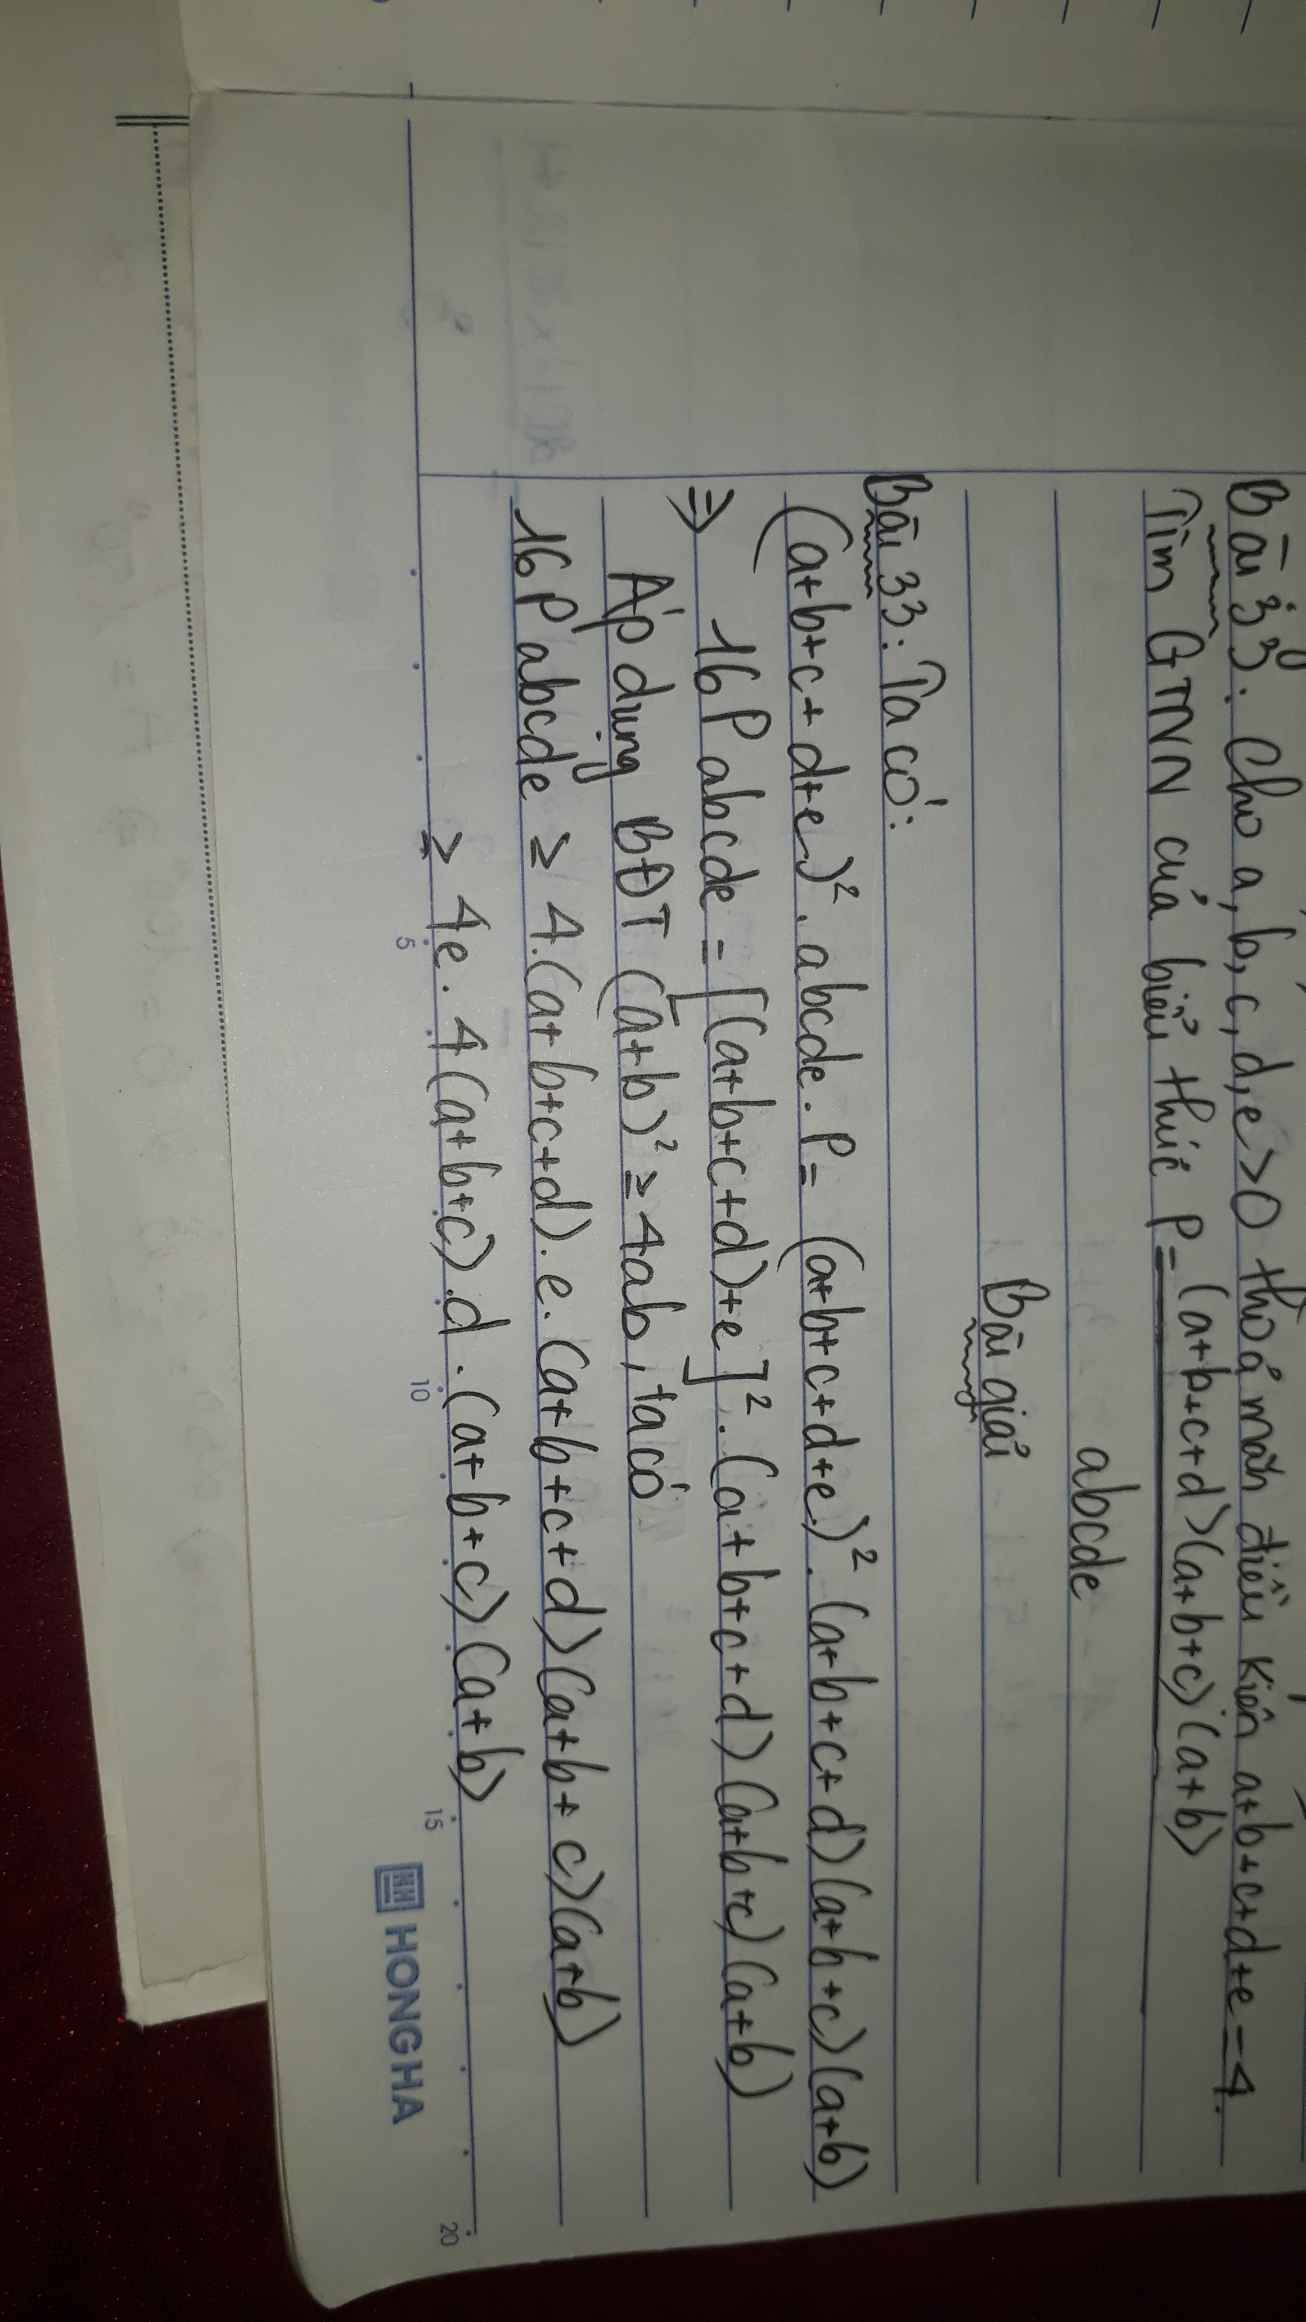 Bài 33: Cho a, b, c, d, e > 0 thoả mãn điều kiện a+b+c+d+e = 4.
Tìm GTNN của biểu thức P = (a+b+c+d)(a+b+c)(a+b)
abcde
Bài giải
Bài 33: Ta có:
(a+b+c+d+e)². abcde. P = (a+b+c+d+e)². (a+b+c+d)(a+b+c)(a+b)
⇒ 16P abcde = [(a+b+c+d)+e]². (a+b+c+d)(a+b+c)(a+b)
Áp dụng BĐT (a+b)² ≥ 4ab, ta có
16P abcde ≥ 4.(a+b+c+d).e.(a+b+c+d)(a+b+c)(a+b)
≥ 4e. 4(a+b+c).d.(a+b+c)(a+b)
5 10 15 20
HONG HA